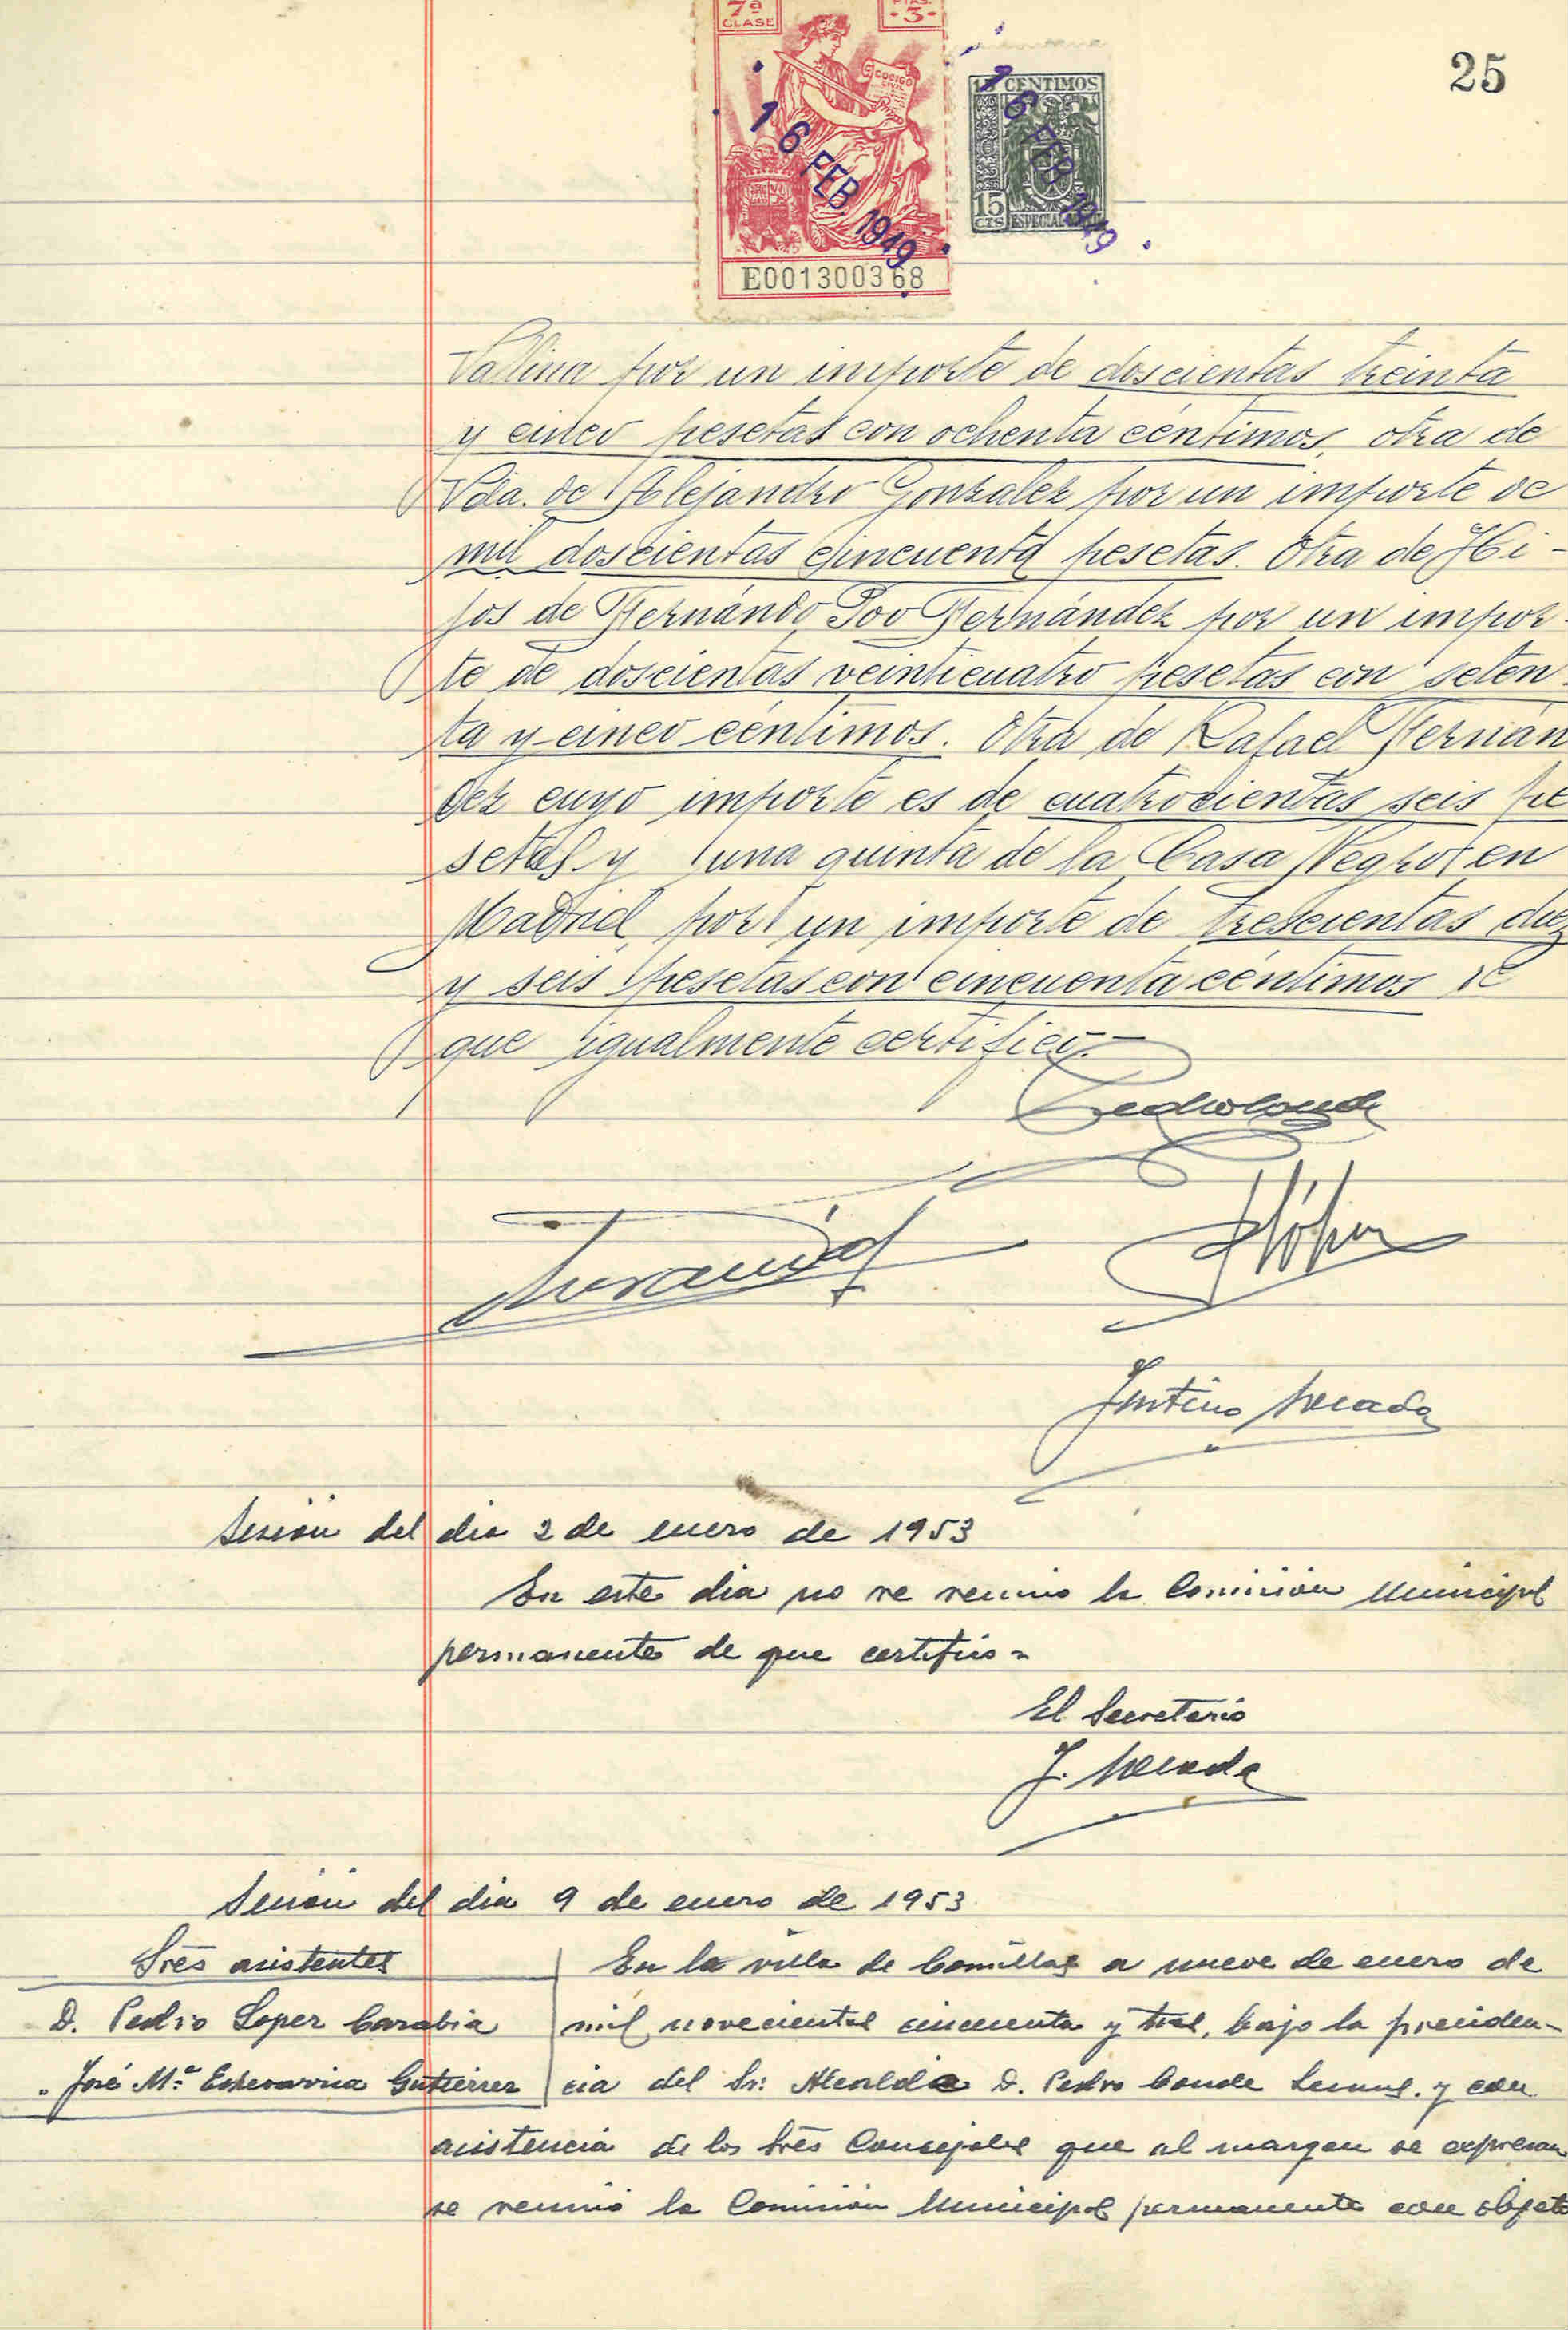 7ª CLASE PTAS. -3-
CODIGO CIVIL
16 FEB. 1949
E001300368
15 CENTIMOS
16 FEB. 1949
15 CTS ESPECIAL
25
Vallina por un importe de doscientas treinta
y cinco pesetas con ochenta céntimos, otra de
Vda. de Alejandro Gonzalez por un importe de
mil doscientas cincuenta pesetas. Otra de Hi-
jos de Fernándo Poo Fernández por un impor-
te de doscientas veinticuatro pesetas con seten-
ta y cinco céntimos. Otra de Rafael Fernán
dez cuyo importe es de cuatrocientas seis pe
setas y una quinta de la Casa Negrot en
Madrid, por un importe de trescientas diez
y seis pesetas con cincuenta céntimos de
que igualmente certifico.-
Pedro Conde
López
Justino
Sesión del dia 2 de enero de 1953
En este dia no se reunio la Comisión Municipal
permanente de que certifico =
El Secretario
J.
Sesion del dia 9 de enero de 1953
Sres asistentes
D. Pedro Lopez Carabia
" José Mª Echevarria Gutierrez
En la villa de Comillas a nueve de enero de
mil novecientos cincuenta y tres, bajo la presiden-
cia del Sr. Alcalde D. Pedro Conde y con
asistencia de los Sres Concejales que al margen se expresan
se reunió la Comisión Municipal permanente con objeto